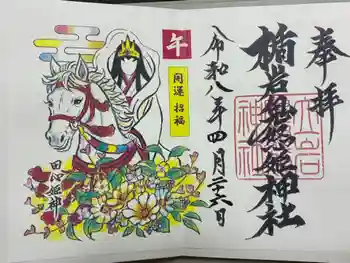 奉拝
楯岩鬼怒姫神社
令和八年四月二十六日
午
開運招福
田心姫神